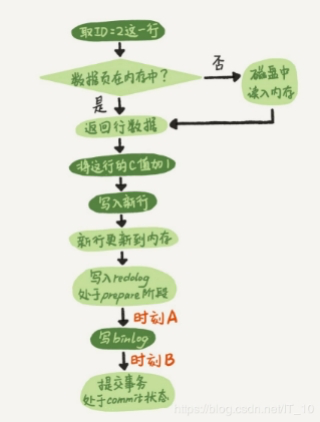 取ID=2这一行
数据页在内存中？
否
磁盘中
读入内存
是
返回行数据
将这行的C值加1
写入新行
新行更新到内存
写入redolog
处于prepare阶段
时刻A
写binlog
时刻B
提交事务
处于commit状态
https://blog.csdn.net/IT_10